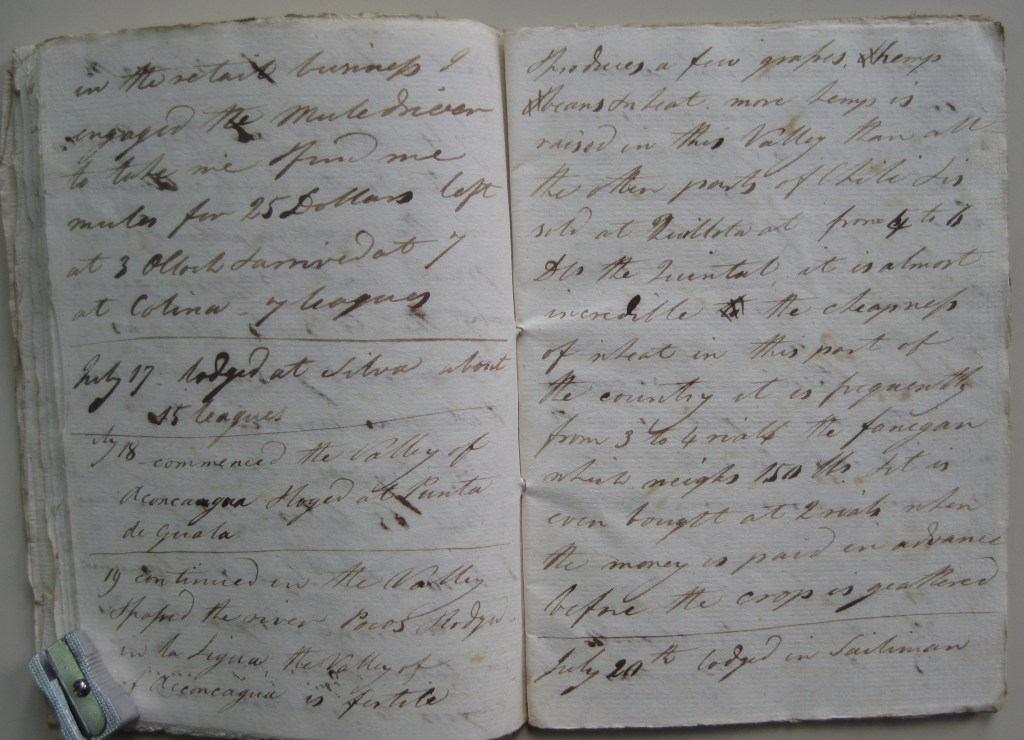 in the retail business I
engaged the Muledriver
to take me & find me
mules for 25 Dollars left
at 3 OClock & arrived at 7
at Colina - 7 leagues
July 17. lodged at Silva about
15 leagues
July 18 commenced the Valley of
Aconcagua & loged at Punta
de Guala
19 continued in the Valley
& passed the river Pocos & lodge
in La Ligua the Valley of
Acconcagua is fertile
& produces a few grapes, & hemp
& beans & wheat. more hemp is
raised in this Valley than all
the other parts of Chili & is
sold at Quillota at from 4 to 6
Dls the Quintal, it is almost
incredible the cheapness
of wheat in this part of
the country it is frequently
from 3 to 4 rials the fanegan
which weighs 150 lbs. & it is
even bought at 2 rials when
the money is paid in advance
before the crop is geathered
July 20th lodged in